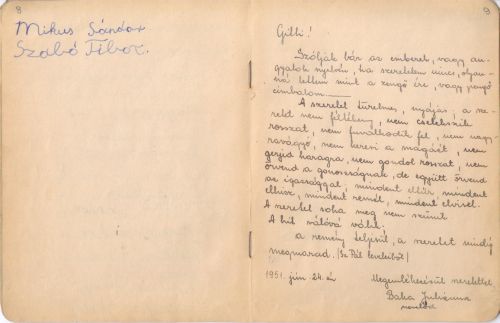 8
Mikus Sándor
Szabó Tibor.
9
Gitti!
Szóljak bár az emberek, vagy an-
gyalok nyelvén, ha szeretetem nincs, olyan-
ná lettem mint a zengő érc, vagy pengő
cimbalom
A szeretet türelmes, nyájas; a sze-
retet nem féltékeny, nem cselekszik
rosszat, nem fuvalkodik fel, nem nagy-
ravágyó, nem keresi a magáét, nem
gerjed haragra, nem gondol rosszat, nem
örvend a gonoszságnak, de együtt örvend
az igazsággal, mindent eltűr, mindent
elhisz, mindent remél, mindent elvisel.
A szeretet soha meg nem szűnik.
A hit valóvá vált.
a remény teljesül, a szeretet mindig
megmarad. (Sz. Pál leveleiből)
1951. jún. 24.-én
Megemlékezésül szeretettel
Baka Julianna